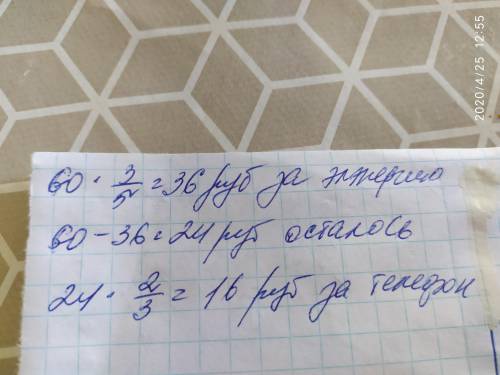 2020/4/25 12:55
60 · 3/5 = 36 руб за энергию
60 - 36 = 24 руб осталось
24 · 2/3 = 16 руб за телефон